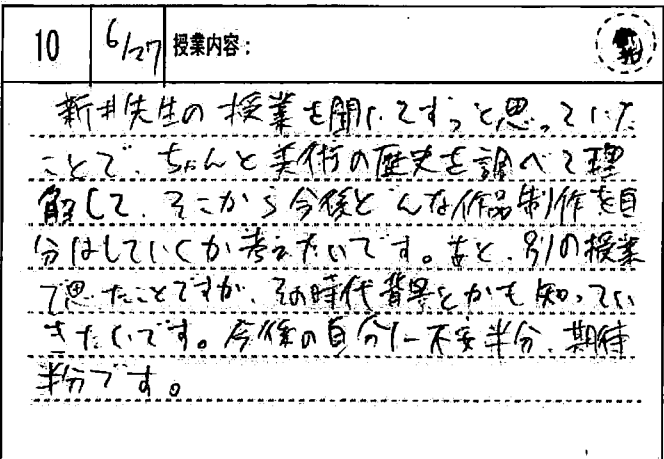 10 6/27 授業内容:
新井先生の授業を聞いてずっと思っていた
ことで、ちゃんと美術の歴史を調べて理
解して、そこから今後どんな作品制作を自
分はしていくか考えたいです。あと、別の授業
で思ったことですが、その時代背景とかも知ってい
きたいです。今後の自分に不安半分、期待
半分です。